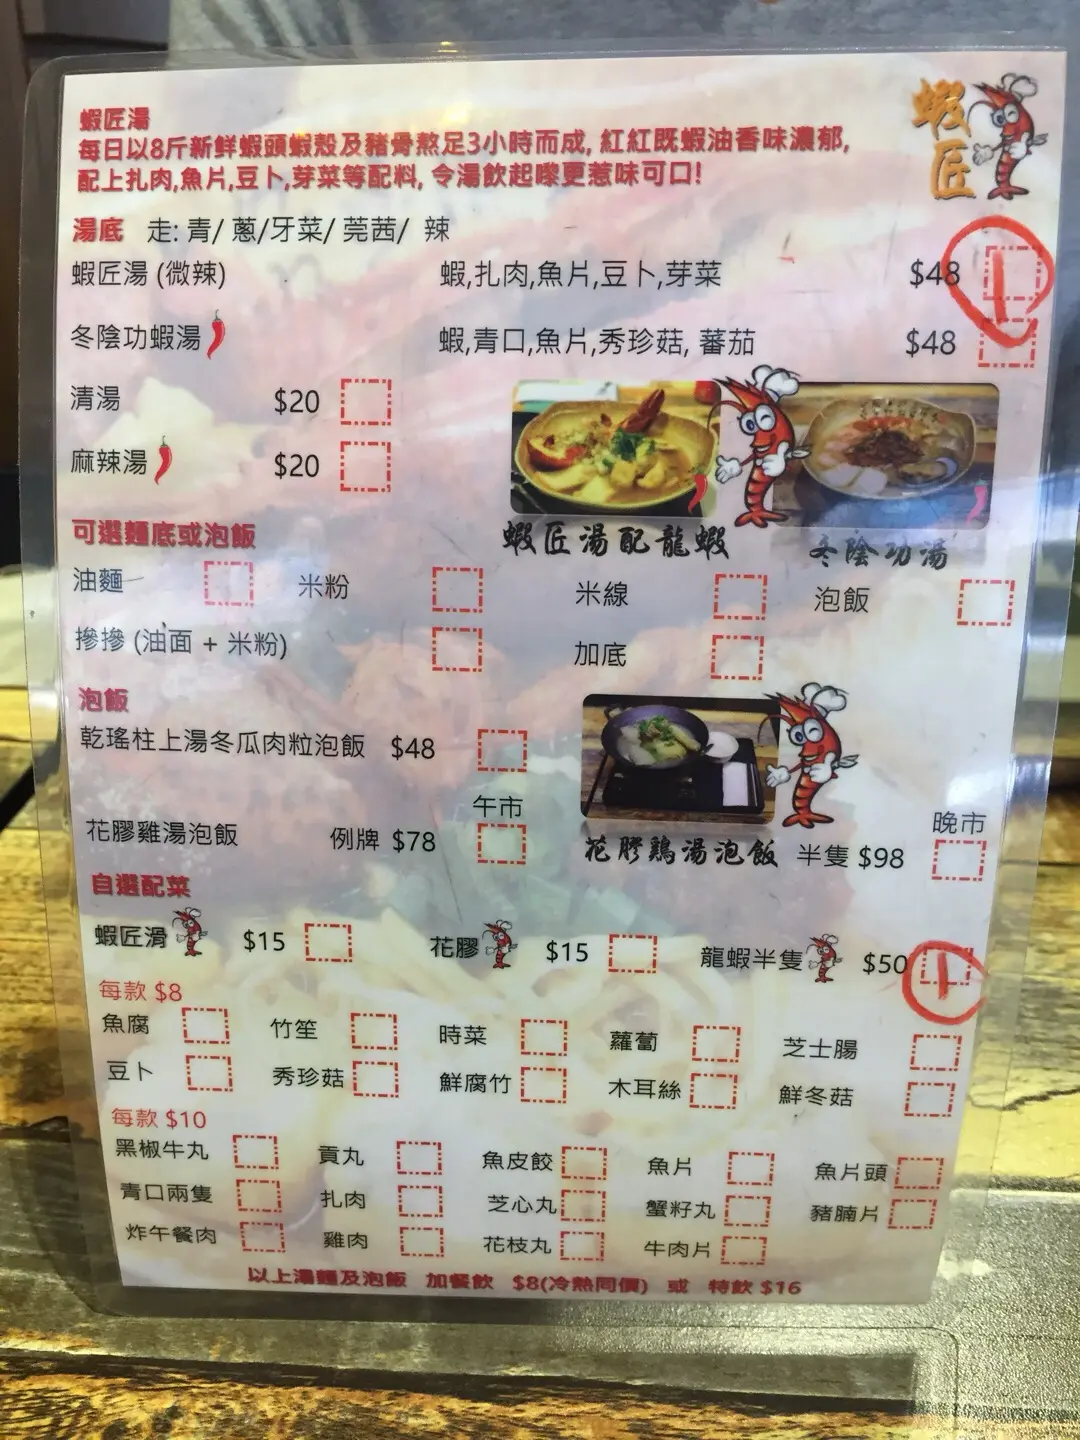 蝦匠
蝦匠湯
每日以8斤新鮮蝦頭蝦殼及豬骨熬足3小時而成, 紅紅既蝦油香味濃郁,
配上扎肉,魚片,豆卜,芽菜等配料, 令湯飲起嚟更惹味可口!
湯底 走: 青/ 蔥/牙菜/ 莞茜/ 辣
蝦匠湯 (微辣) 蝦,扎肉,魚片,豆卜,芽菜 $48 1
冬陰功蝦湯 蝦,青口,魚片,秀珍菇, 蕃茄 $48
清湯 $20
麻辣湯 $20
蝦匠湯配龍蝦 冬陰功湯
可選麵底或泡飯
油麵 米粉 米線 泡飯
摻摻 (油面 + 米粉) 加底
泡飯
乾瑤柱上湯冬瓜肉粒泡飯 $48
午市 晚市
花膠雞湯泡飯 例牌 $78 花膠鷄湯泡飯 半隻 $98
自選配菜
蝦匠滑 $15 花膠 $15 龍蝦半隻 $50 1
每款 $8
魚腐 竹笙 時菜 蘿蔔 芝士腸
豆卜 秀珍菇 鮮腐竹 木耳絲 鮮冬菇
每款 $10
黑椒牛丸 貢丸 魚皮餃 魚片 魚片頭
青口兩隻 扎肉 芝心丸 蟹籽丸 豬腩片
炸午餐肉 雞肉 花枝丸 牛肉片
以上湯麵及泡飯 加餐飲 $8(冷熱同價) 或 特飲 $16